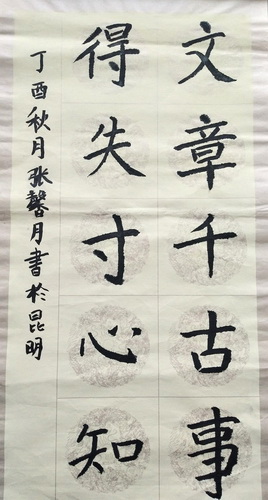 文章千古事
得失寸心知
丁酉秋月张馨月书於昆明